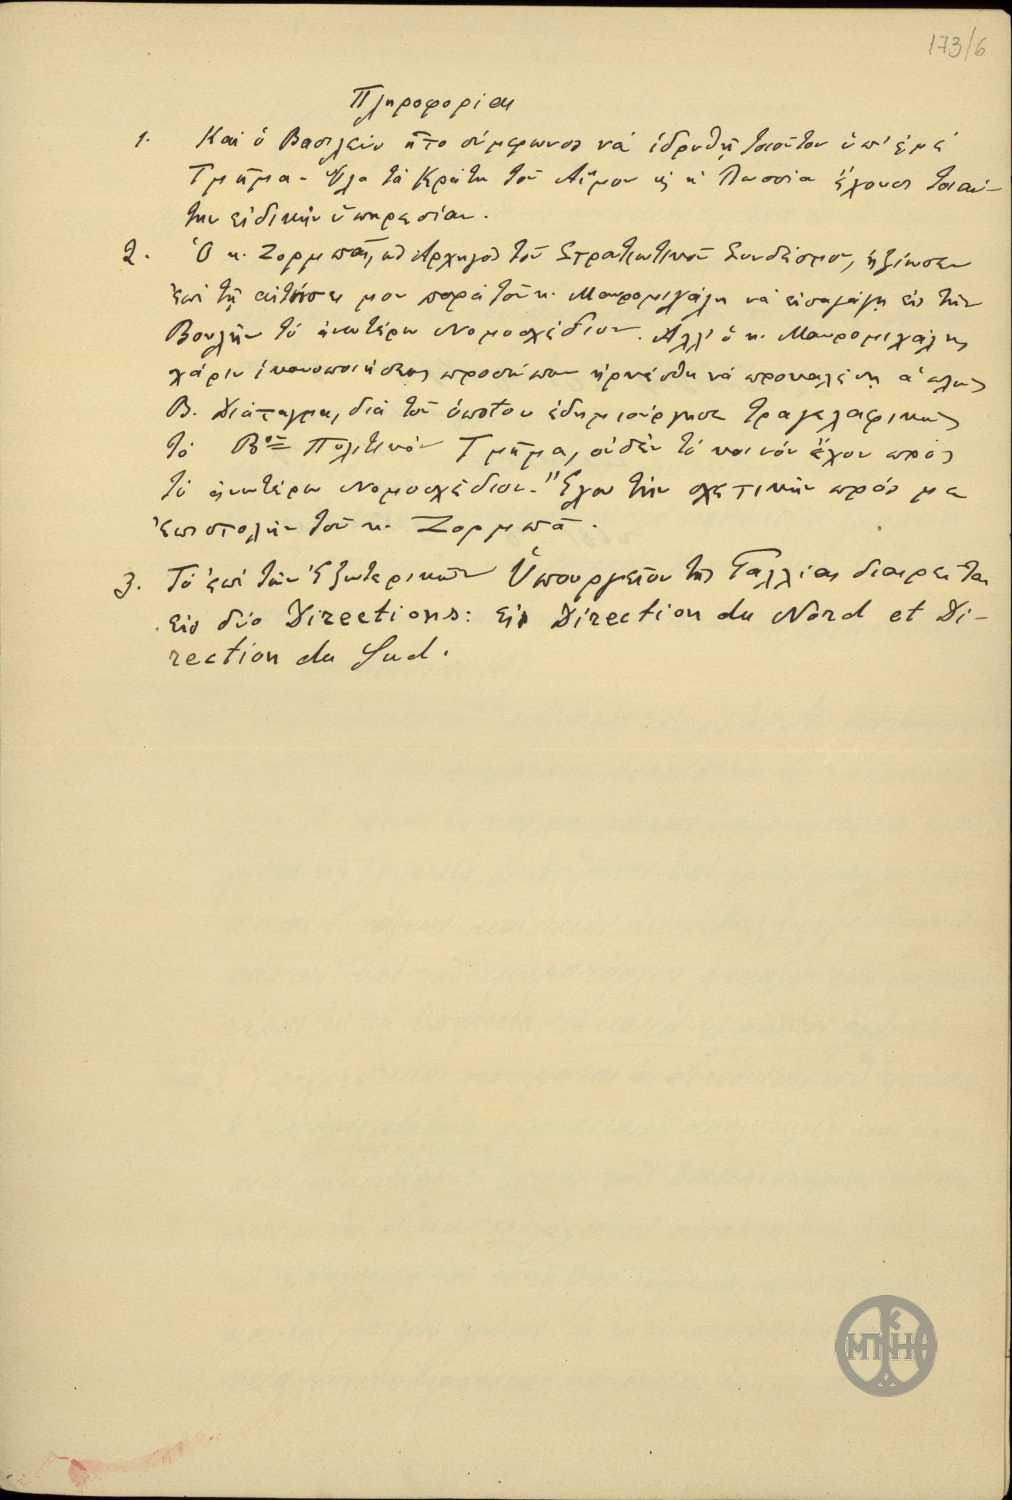 173/6
Πληροφορίαι
1. Καί ὁ Βασιλεύς ἦτο σύμφωνος νά ἱδρυθῇ τοιοῦτον ὑπ' ἐμέ
Τμῆμα. Ὅλα τά Κράτη τοῦ Αἵμου κ ἡ Ρωσσία ἔχουσι τοιαύ-
την εἰδικήν ὑπηρεσίαν.
2. Ὁ κ. Ζορμπᾶς, ὡς Ἀρχηγός τοῦ Στρατιωτικοῦ Συνδέσμου, ἠξίωσεν
ἐπί τῇ αἰτήσει μου παρά τοῦ κ. Μαυρομιχάλη νά εἰσαγάγῃ εἰς τήν
Βουλήν τό ἀνωτέρω Νομοσχέδιον. Ἀλλ' ὁ κ. Μαυρομιχάλης
χάριν ἱκανοποιήσεως προσώπων ἠρκέσθη νά προκαλέσῃ ἁπλῶς
Β. Διάταγμα, διά τοῦ ὁποίου ἐδημιούργησε τραγελαφικῶς
τό Βον Πολιτικόν Τμῆμα, οὐδέν τό κοινόν ἔχον πρός
τό ἀνωτέρω Νομοσχέδιον. Ἔχω τήν σχετικήν πρός με
ἐπιστολήν τοῦ κ. Ζορμπᾶ.
3. Τό ἐπί τῶν Ἐξωτερικῶν Ὑπουργεῖον τῆς Γαλλίας διαιρεῖται
εἰς δύο Directions: εἰς Direction du Nord et Di-
rection du Sud.
ΜΠΚΗ